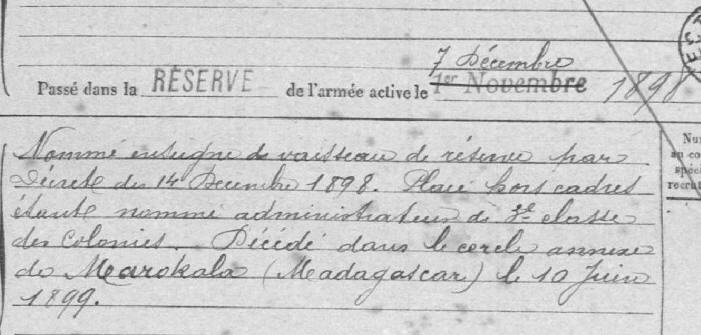 7 Décembre
Passé dans la RÉSERVE de l'armée active le 1er Novembre 1898
Nommé enseigne de vaisseau de réserve par
Décret du 14 Décembre 1898. Placé hors cadres
étant nommé administrateur de 3e classe
des Colonies. Décédé dans le cercle annexe
de Marokala (Madagascar) le 10 Juin
1899.